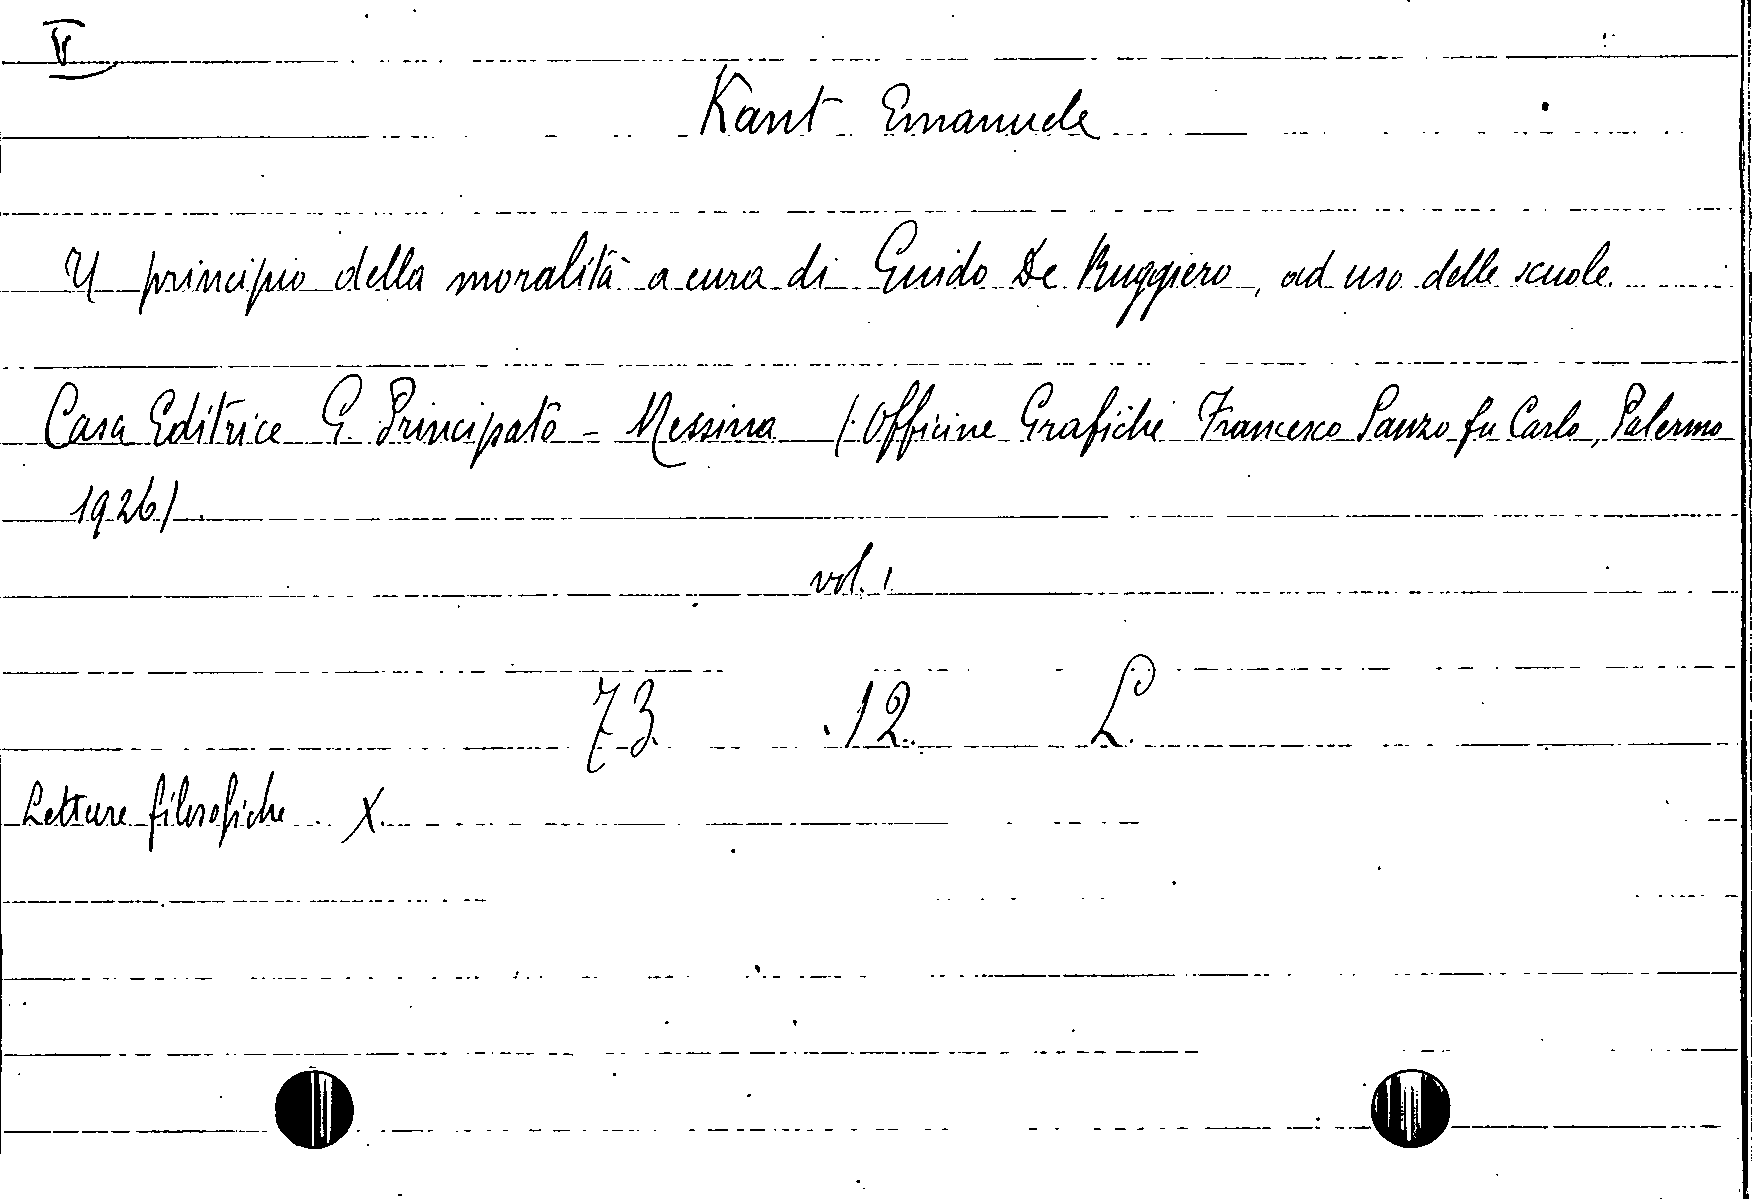 V
Kant Emanuele
Il principio della moralità a cura di Guido De Ruggiero, ad uso delle scuole.
Casa Editrice G. Principato - Messina (: Officine Grafiche Francesco Sanzo fu Carlo, Palermo
1926).
vol. 1
73. 12. L.
Letture filosofiche. X.